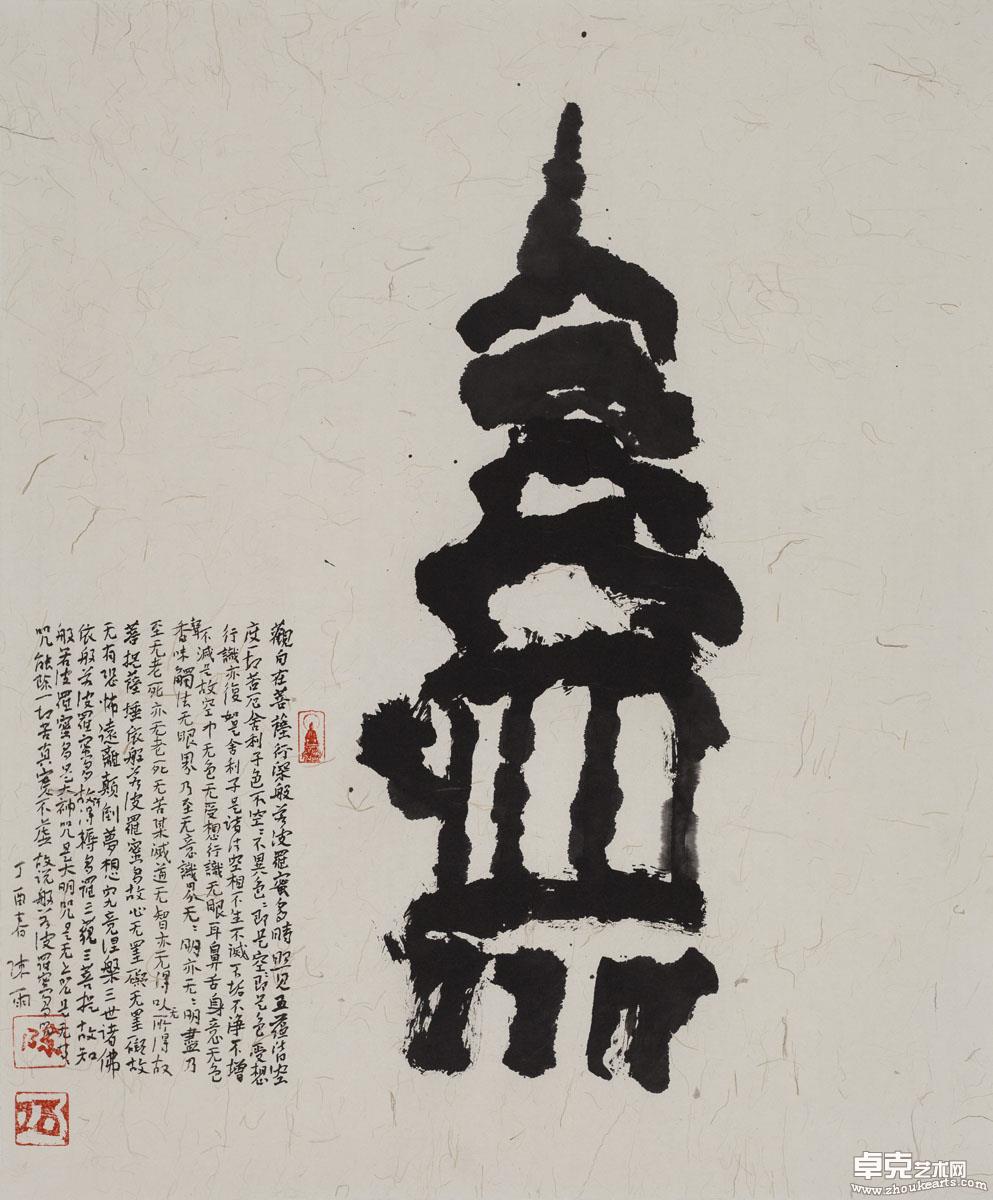 觀自在菩薩行深般若波羅蜜多時照見五蘊皆空
度一切苦厄舍利子色不空〻不異色〻即是空即是色受想
行識亦復如是舍利子是諸法空相不生不滅不垢不净不增
不減是故空中无色无受想行識无眼耳鼻舌身意无色
聲香味觸法无眼界乃至无意識界无〻明亦无〻明盡乃
至无老死亦无老死无苦集滅道无智亦无得以无所得故
菩提薩埵依般若波羅蜜多故心无罣礙无罣礙故
无有恐怖遠離顛倒夢想究竟涅槃三世諸佛
依般若波羅蜜多故得耨多羅三藐三菩提故知
般若波羅蜜多是大神咒是大明咒是无上咒是无等
咒能除一切苦真實不虛故説般若波羅蜜多
丁酉春 陈雨
卓克艺术网
www.zhoukearts.com